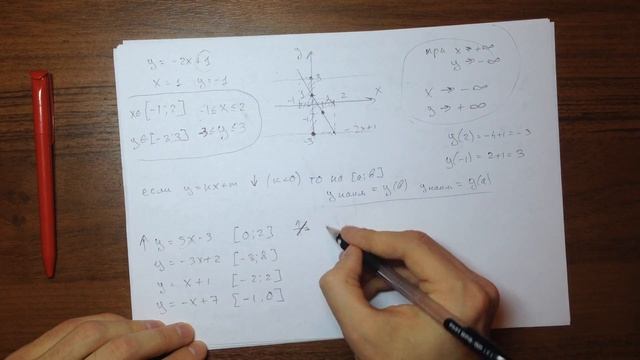 y = -2x+1
x=1 y=-1
x∈[-1;2] -1≤x≤2
y∈[-3;3] -3≤y≤3
y
3
1
-1
2
x
-1
-3
-2x+1
при x→+∞
y→-∞
x→-∞
y→+∞
y(2)=-4+1=-3
y(-1)=2+1=3
если y=kx+m ↓ (k<0) то на [a;b]
y наим = y(b) y наиб = y(a)
↑ y = 5x-3 [0;2]
y = -3x+2 [-8;8]
y = x+1 [-2;2]
y = -x+7 [-1,0]